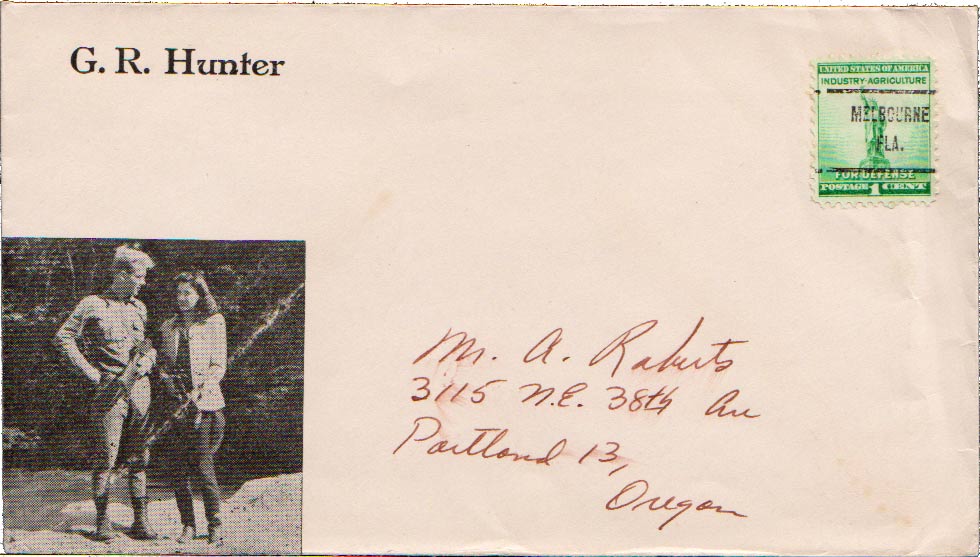 G. R. Hunter
UNITED STATES OF AMERICA
INDUSTRY-AGRICULTURE
MELBOURNE
FLA.
FOR DEFENSE
POSTAGE 1 CENT
Mr. A. Roberts
3115 N.E. 38th Av
Portland 13,
Oregon